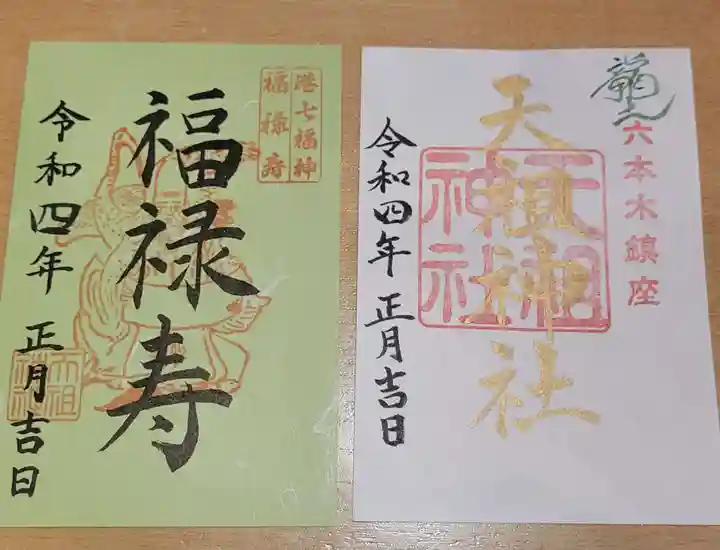 港七福神
福禄寿
福禄寿
令和四年 正月吉日
天祖神社
六本木鎮座
天祖神社
天祖神社
令和四年 正月吉日